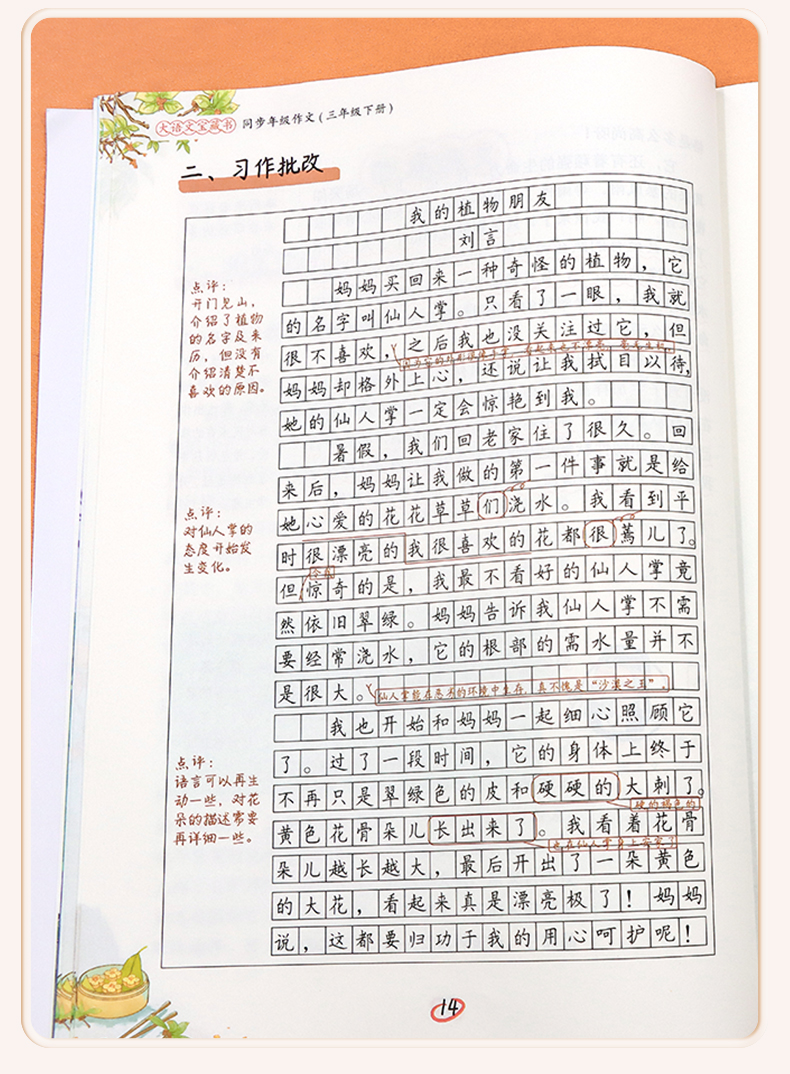 大语文宝藏书 同步年级作文(三年级下册)
二、习作批改
我的植物朋友
刘言
妈妈买回来一种奇怪的植物，它
的名字叫仙人掌。只看了一眼，我就
很不喜欢，之后我也没关注过它，但
妈妈却格外上心，还说让我拭目以待，
她的仙人掌一定会惊艳到我。
暑假，我们回老家住了很久。回
来后，妈妈让我做的第一件事就是给
她心爱的花花草草们浇水。我看到平
时很漂亮的我很喜欢的花都很蔫儿了。
但惊奇的是，我最不看好的仙人掌竟
然依旧翠绿。妈妈告诉我仙人掌不需
要经常浇水，它的根部的需水量并不
是很大。
仙人掌能在恶劣的环境中生存，真不愧是“沙漠之王”。
我也开始和妈妈一起细心照顾它
了。过了一段时间，它的身体上终于
不再只是翠绿色的皮和硬硬的大刺了。
硬的褐色的
黄色花骨朵儿长出来了。我看着花骨
朵儿越长越大，最后开出了一朵黄色
的大花，看起来真是漂亮极了！妈妈
说，这都要归功于我的用心呵护呢！
点评：
开门见山，
介绍了植物
的名字及来
历，但没有
介绍清楚不
喜欢的原因。
点评：
对仙人掌的
态度开始发
生变化。
点评：
语言可以再生
动一些，对花
朵的描述需要
再详细一些。
14